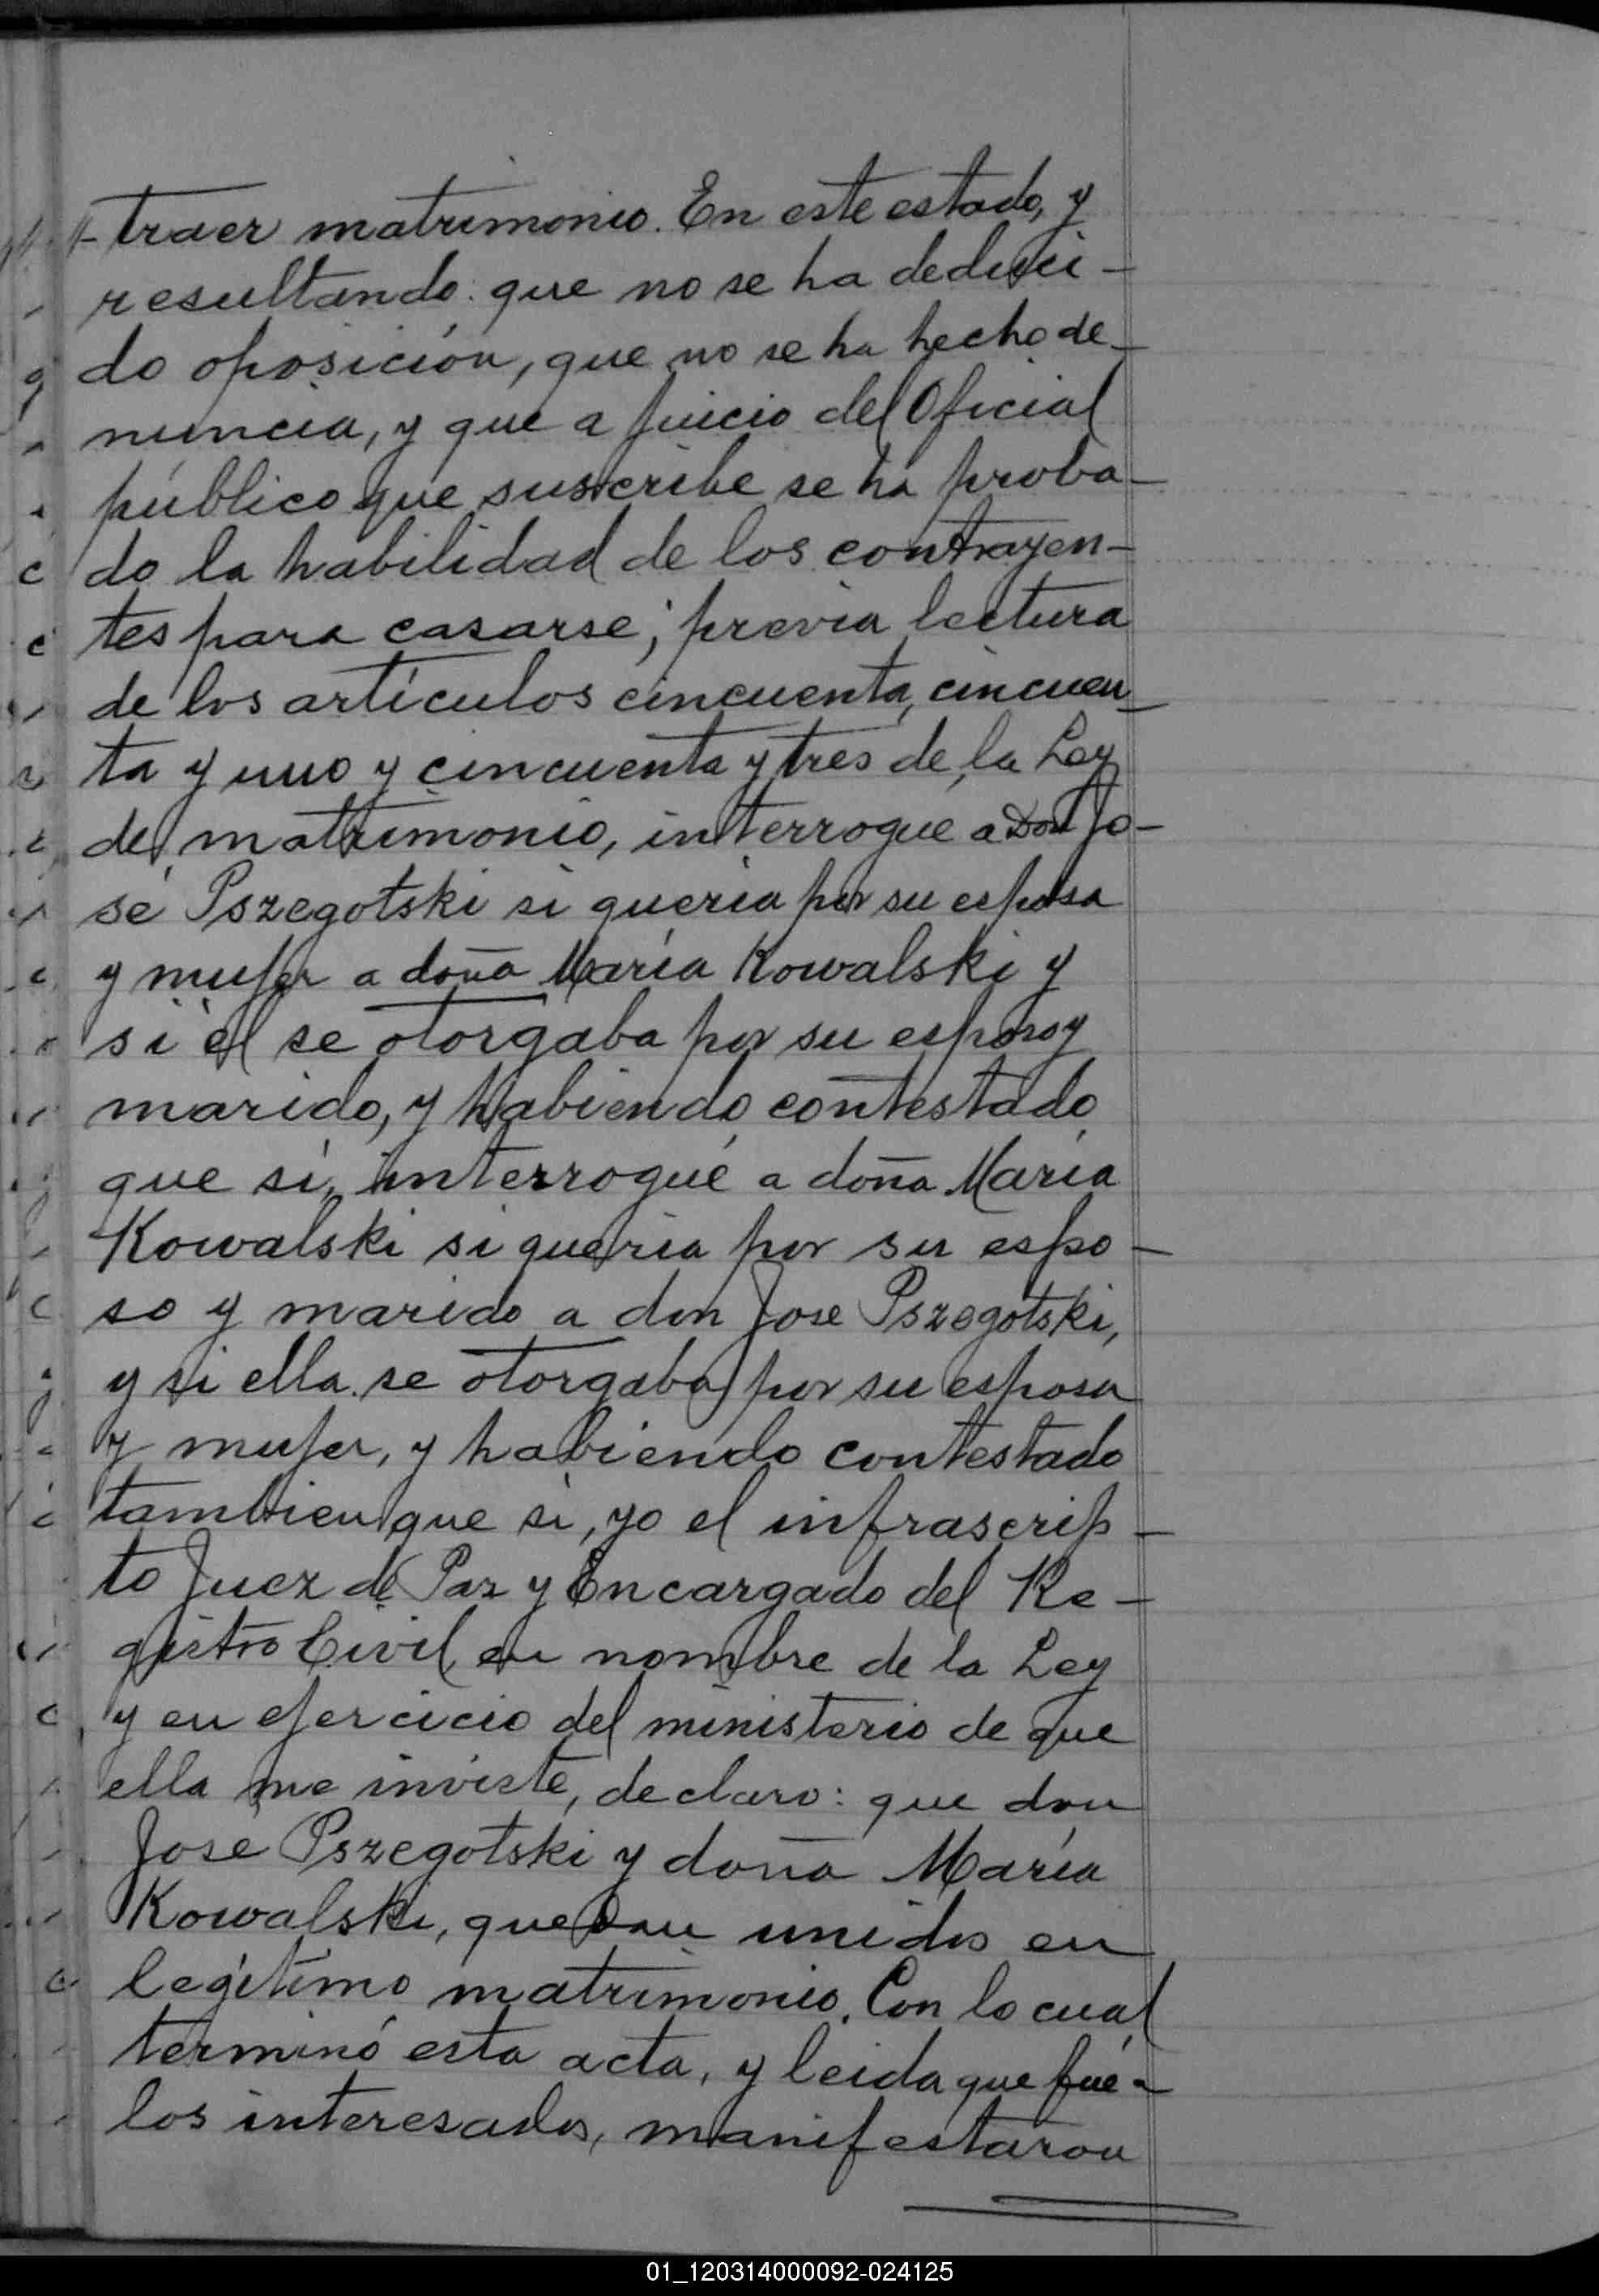 traer matrimonio. En este estado, y
resultando: que no se ha deduci-
do oposición, que no se ha hecho de-
nuncia, y que a juicio del Oficial
público que suscribe se ha proba-
do la habilidad de los contrayen-
tes para casarse; previa lectura
de los artículos cincuenta, cincuen-
ta y uno y cincuenta y tres de la Ley
de matrimonio, interrogué a Don Jo-
sé Pszegotski si queria por su esposa
y mujer a doña María Kowalski y
si él se otorgaba por su esposo y
marido, y habiendo contestado
que sí, interrogué a doña María
Kowalski si queria por su espo-
so y marido a don José Pszegotski,
y si ella se otorgaba por su esposa
y mujer, y habiendo contestado
tambien que si, yo el infrascrip-
to Juez de Paz y Encargado del Re-
gistro Civil, en nombre de la Ley
y en ejercicio del ministerio de que
ella me inviste, declaro: que don
José Pszegotski y doña María
Kowalski, quedan unidos en
legítimo matrimonio. Con lo cual
terminó esta acta, y leida que fué a
los interesados, manifestaron
01_120314000092-024125